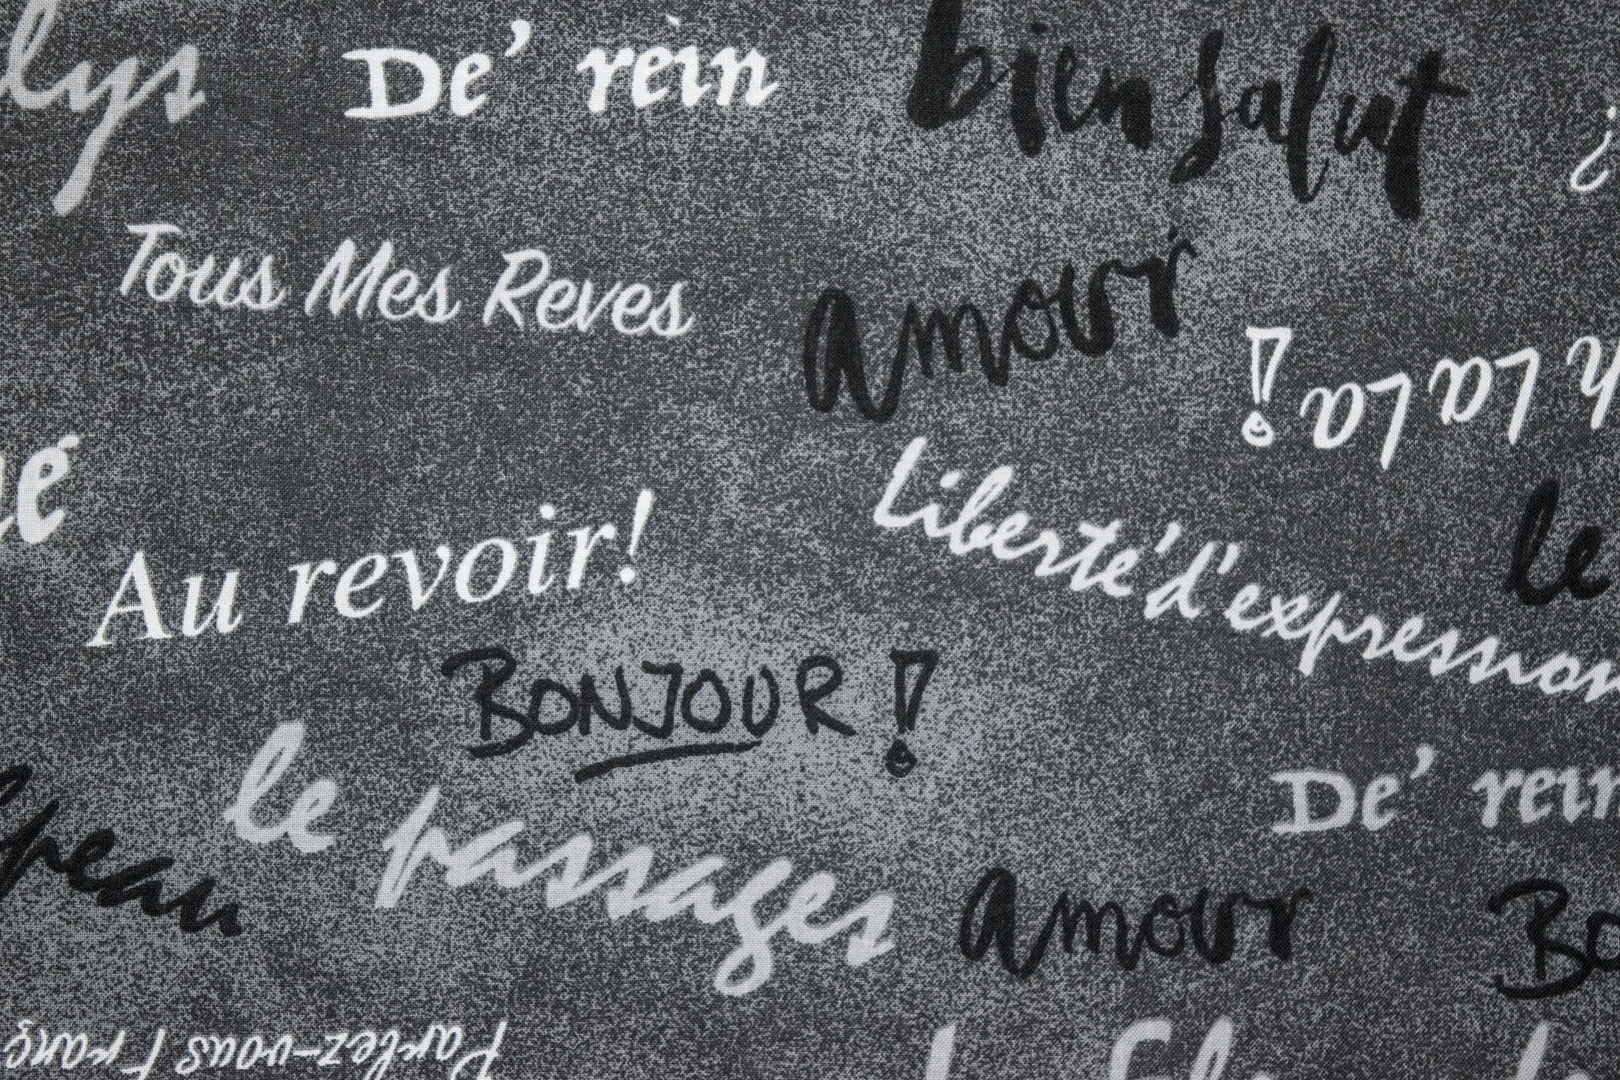 lys
De' rein
bien salut
Tous Mes Reves
amour
h La La!
é
Liberté d'expression
le
Au revoir!
BONJOUR!
le passages
De' rein
peau
amour
Bo
Parlez-vous Franç